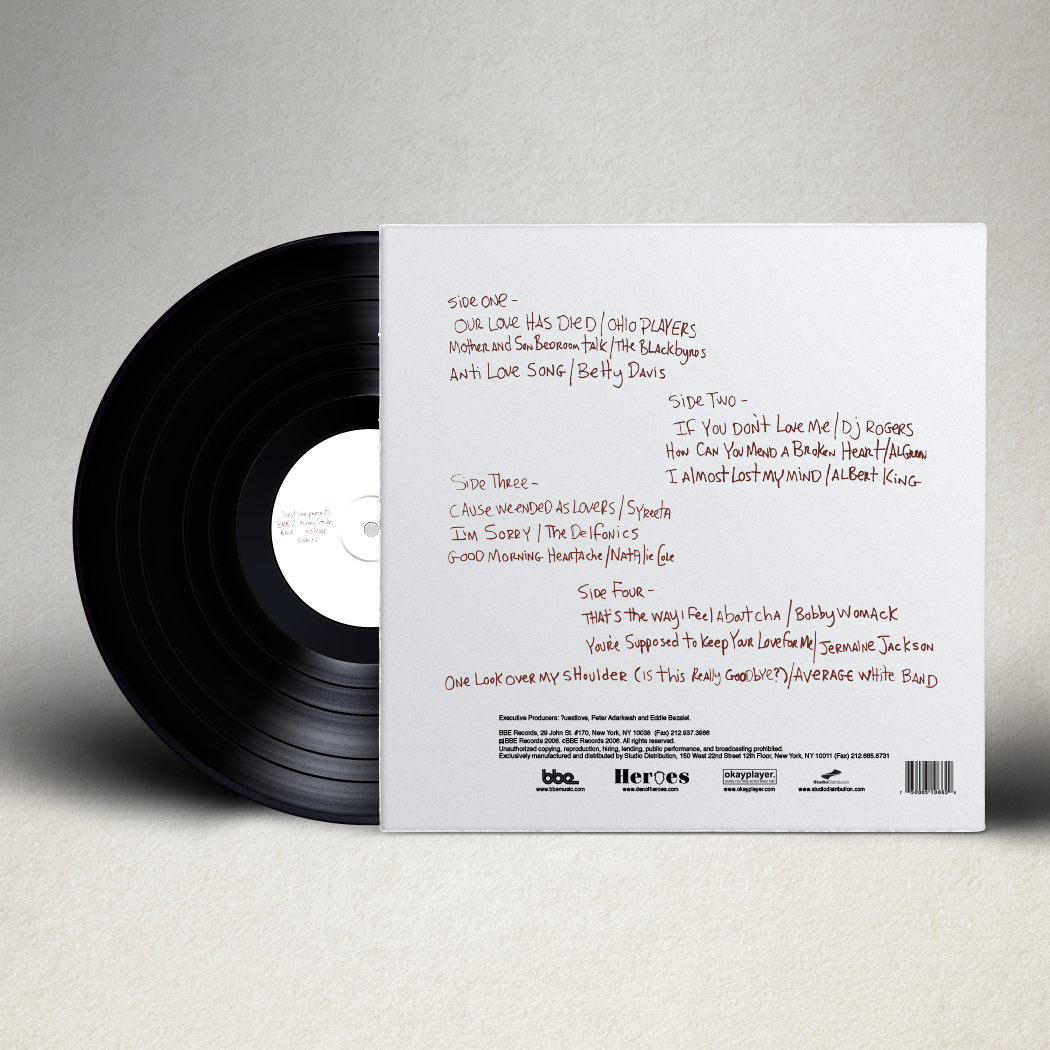 Side One -
Our Love Has Died / Ohio Players
Mother and Son Bedroom Talk / The Blackbyrds
Anti Love Song / Betty Davis
Side Two -
If You Don't Love Me / Dj Rogers
How Can You Mend A Broken Heart / Al Green
I Almost Lost My Mind / Albert King
Side Three -
Cause We Ended As Lovers / Syreeta
I'm Sorry / The Delfonics
Good Morning Heartache / Natalie Cole
Side Four -
That's the Way I Feel About Cha / Bobby Womack
You're Supposed to Keep Your Love for Me / Jermaine Jackson
One Look Over My Shoulder (Is This Really Goodbye?) / Average White Band
Executive Producers: ?uestlove, Peter Adarkwah and Eddie Bezalel.
BBE Records, 29 John St. #170, New York, NY 10038 (Fax) 212.937.3966
(p)BBE Records 2006. cBBE Records 2006. All rights reserved.
Unauthorized copying, reproduction, hiring, lending, public performance, and broadcasting prohibited.
Exclusively manufactured and distributed by Studio Distribution, 150 West 22nd Street 12th Floor, New York, NY 10011 (Fax) 212.685.8731
bbe Heroes okayplayer. StudioDistribution
www.bbemusic.com www.denofheroes.com www.okayplayer.com www.studiodistribution.com
?uestlove presents
Babies